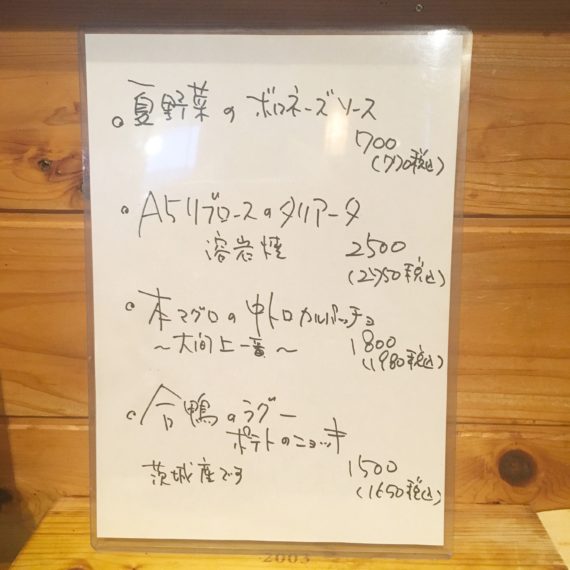 。夏野菜のボロネーズソース
700
(770税込)
。A5リブロースのタリアータ
溶岩焼 2500
(2750税込)
。本マグロの中トロカルパッチョ
〜大間上一番〜 1800
(1980税込)
。合鴨のラグー
ポテトのニョッキ
茨城産です 1500
(1650税込)
2003